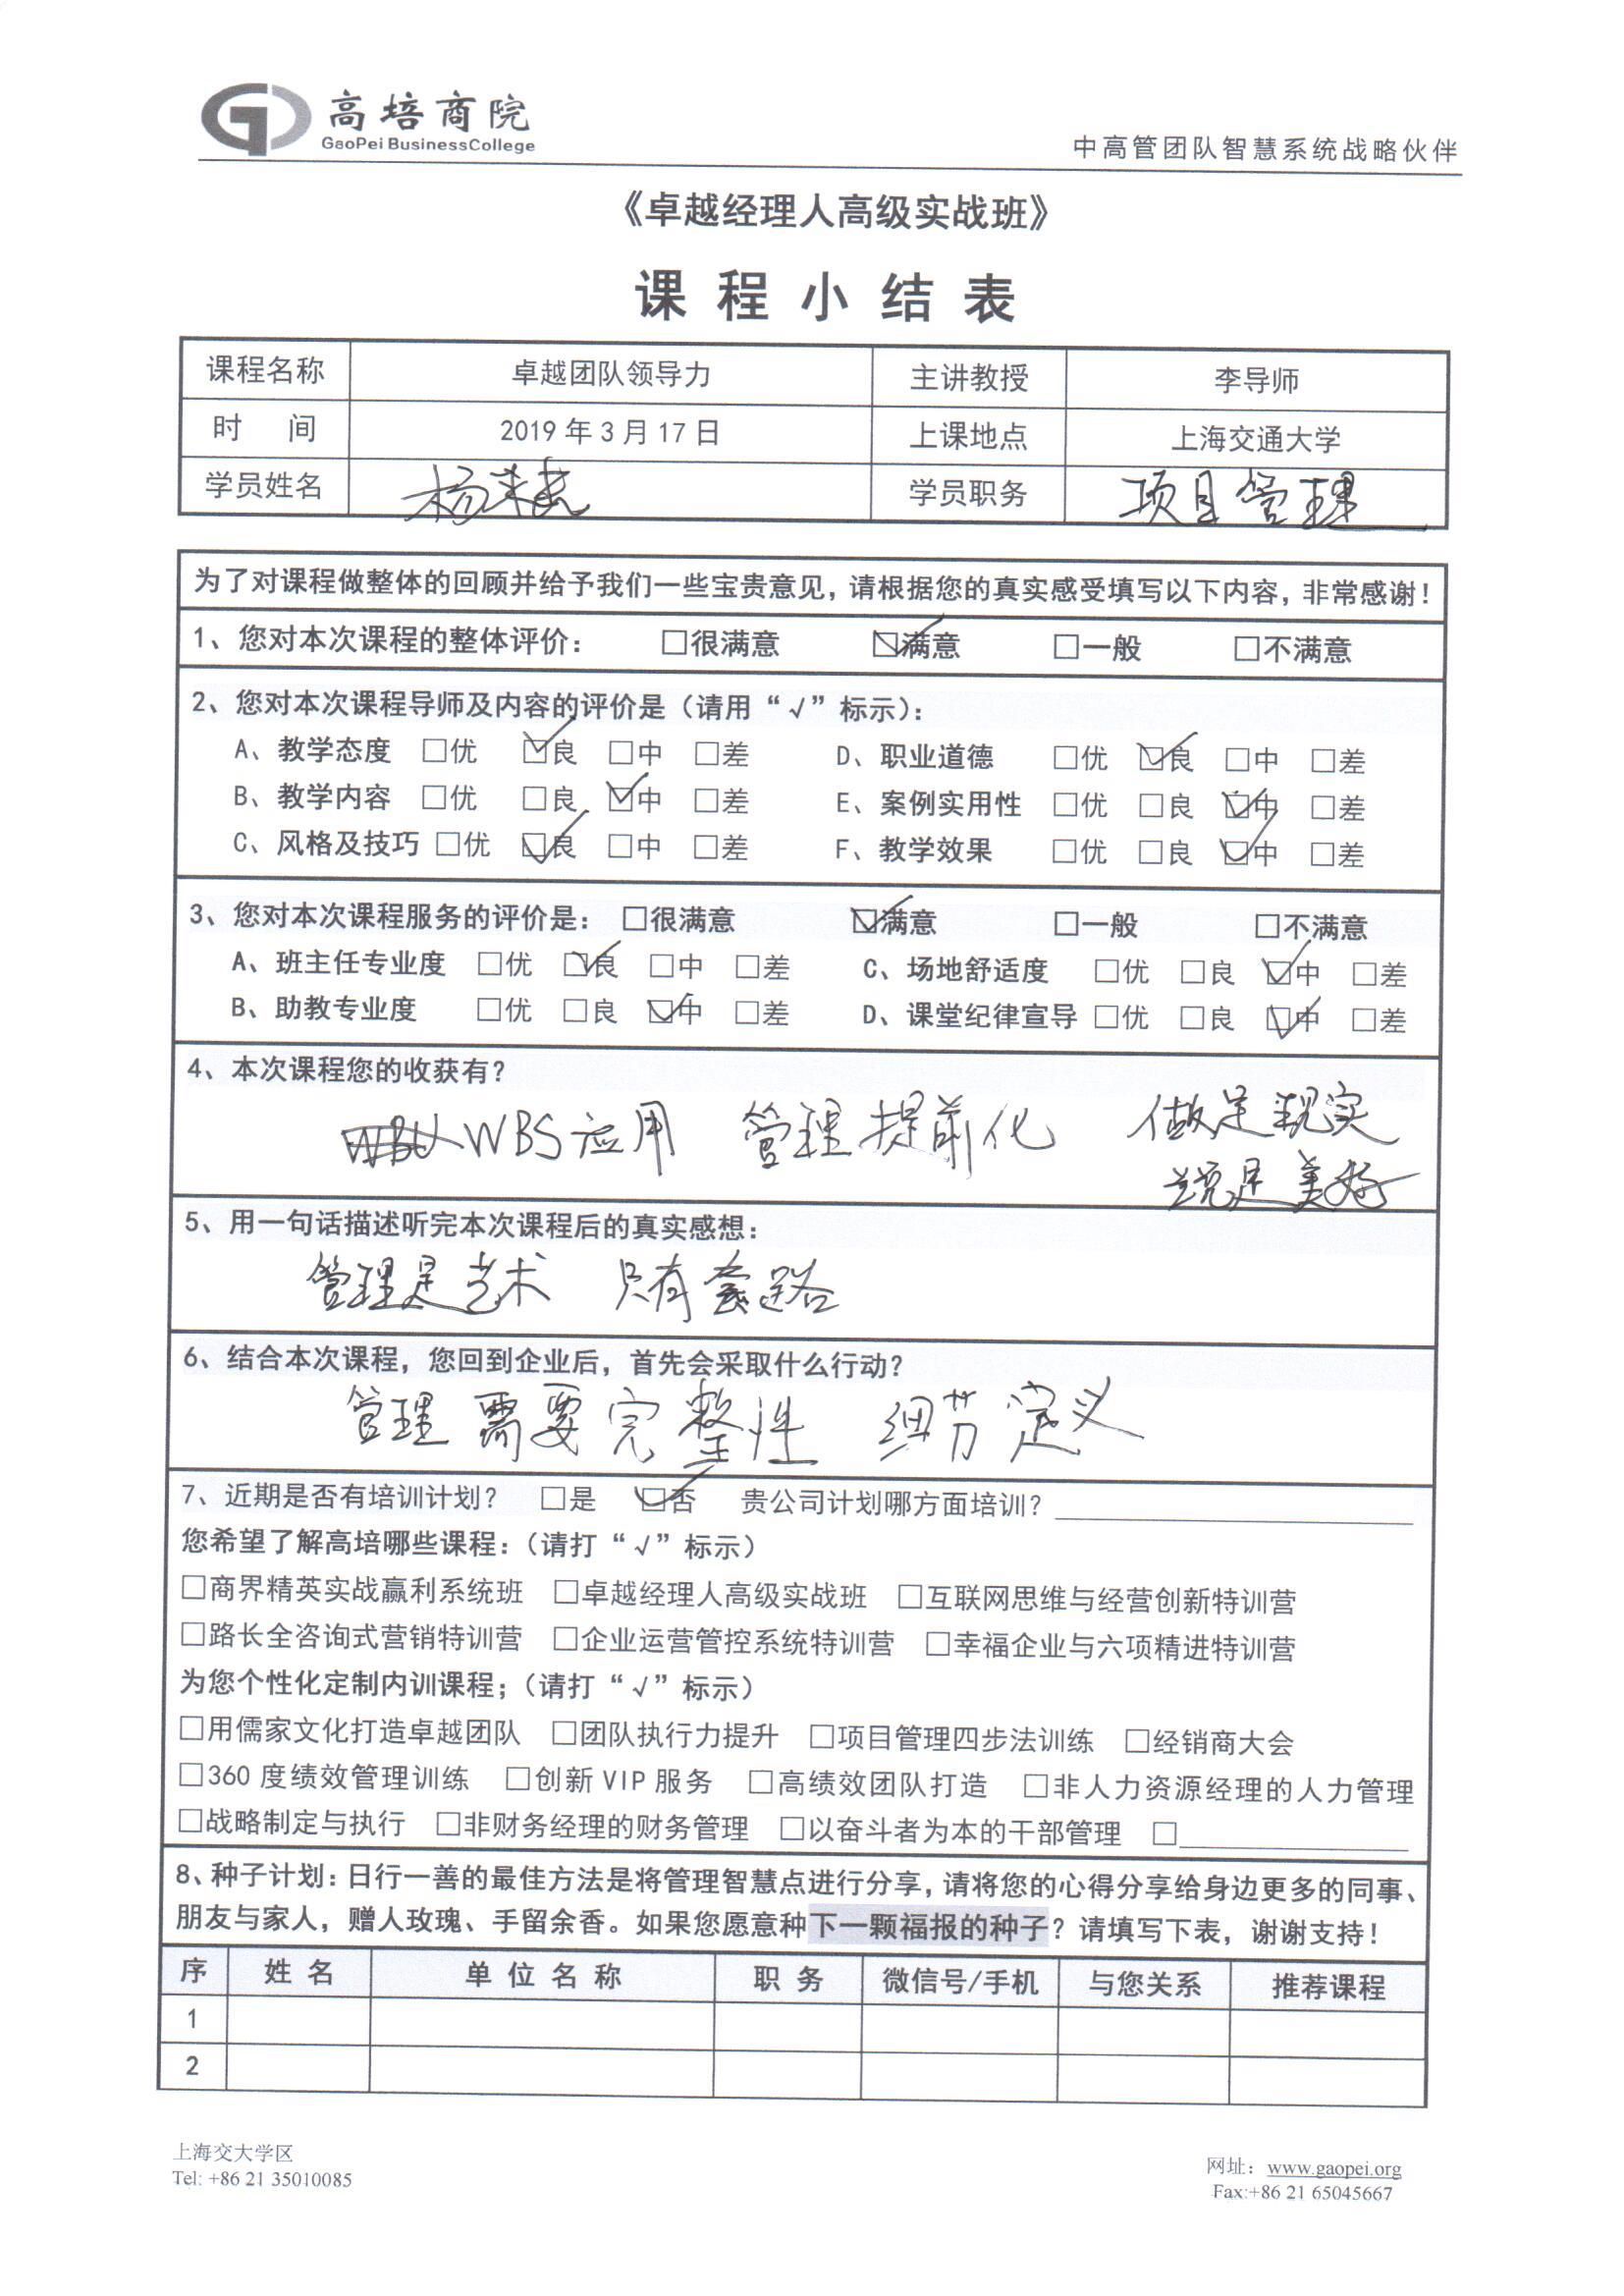 高培商院
GaoPei BusinessCollege
中高管团队智慧系统战略伙伴
《卓越经理人高级实战班》
课程小结表
课程名称 卓越团队领导力 主讲教授 李导师
时 间 2019 年 3 月 17 日 上课地点 上海交通大学
学员姓名 杨 学员职务 项目管理
为了对课程做整体的回顾并给予我们一些宝贵意见，请根据您的真实感受填写以下内容，非常感谢！
1、您对本次课程的整体评价： □很满意 ☑满意 □一般 □不满意
2、您对本次课程导师及内容的评价是（请用“√”标示）：
A、教学态度 □优 ☑良 □中 □差 D、职业道德 □优 ☑良 □中 □差
B、教学内容 □优 □良 ☑中 □差 E、案例实用性 □优 □良 ☑中 □差
C、风格及技巧 □优 ☑良 □中 □差 F、教学效果 □优 □良 ☑中 □差
3、您对本次课程服务的评价是： □很满意 ☑满意 □一般 □不满意
A、班主任专业度 □优 ☑良 □中 □差 C、场地舒适度 □优 □良 ☑中 □差
B、助教专业度 □优 □良 ☑中 □差 D、课堂纪律宣导 □优 □良 ☑中 □差
4、本次课程您的收获有？
WBS应用 管理提前化 做足现实
说是美好
5、用一句话描述听完本次课程后的真实感想：
管理是艺术 只有套路
6、结合本次课程，您回到企业后，首先会采取什么行动？
管理需要完整性 细节定义
7、近期是否有培训计划？ □是 ☑否 贵公司计划哪方面培训？
您希望了解高培哪些课程：（请打“√”标示）
□商界精英实战赢利系统班 □卓越经理人高级实战班 □互联网思维与经营创新特训营
□路长全咨询式营销特训营 □企业运营管控系统特训营 □幸福企业与六项精进特训营
为您个性化定制内训课程；（请打“√”标示）
□用儒家文化打造卓越团队 □团队执行力提升 □项目管理四步法训练 □经销商大会
□360 度绩效管理训练 □创新 VIP 服务 □高绩效团队打造 □非人力资源经理的人力管理
□战略制定与执行 □非财务经理的财务管理 □以奋斗者为本的干部管理 □
8、种子计划：日行一善的最佳方法是将管理智慧点进行分享，请将您的心得分享给身边更多的同事、
朋友与家人，赠人玫瑰、手留余香。如果您愿意种下一颗福报的种子？请填写下表，谢谢支持！
序 姓 名 单 位 名 称 职 务 微信号/手机 与您关系 推荐课程
1
2
上海交大学区
Tel: +86 21 35010085
网址： www.gaopei.org
Fax:+86 21 65045667